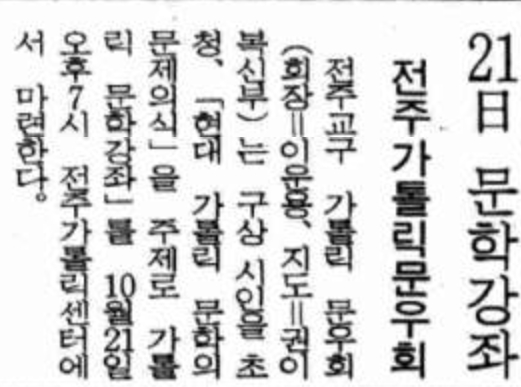 21日 문학강좌
전주가톨릭문우회
전주교구 가톨릭 문우회
(회장=이운용、지도=권이
복신부)는 구상 시인을 초
청、「현대 가톨릭 문학의
문제의식」을 주제로 가톨
릭 문학강좌」를 10월21일
오후7시 전주가톨릭센터에
서 마련한다。